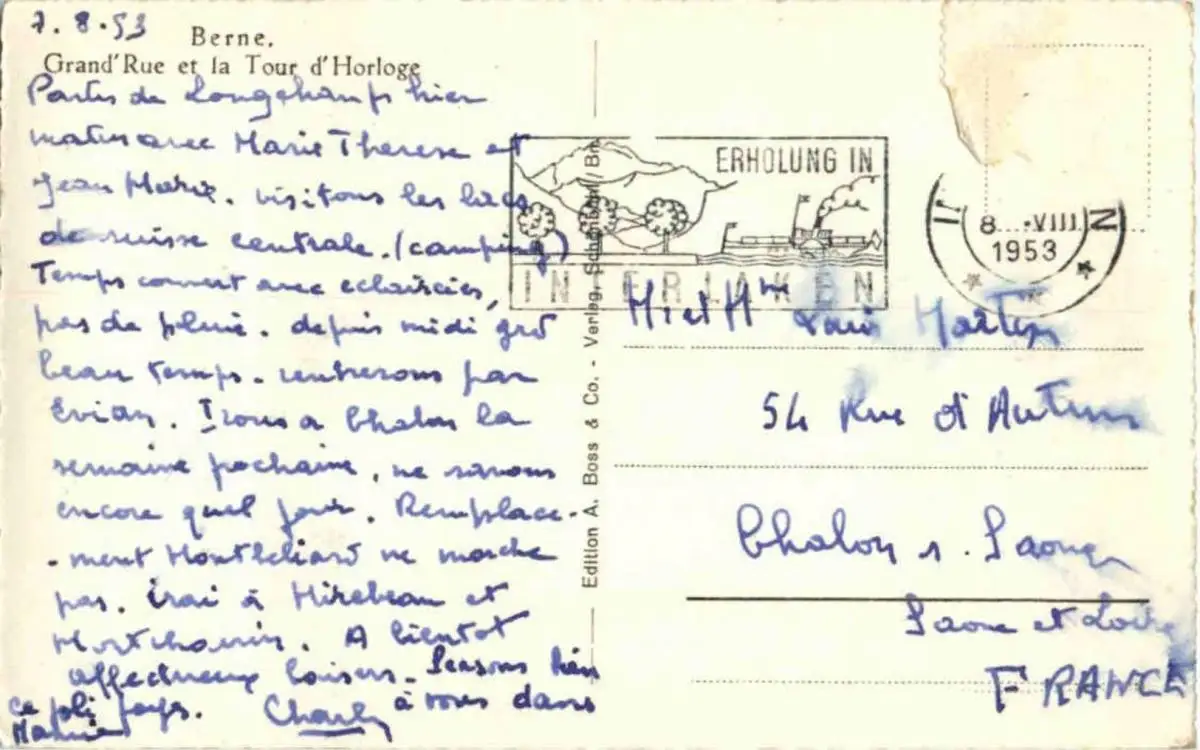 7.8.53
Berne.
Grand'Rue et la Tour d'Horloge
Partis de Longchamps hier
matin avec Marie Therese et
Jean Marie. visitons les lacs
de suisse centrale. (camping)
Temps couvert avec eclaircies,
pas de pluie. depuis midi gro
beau temps. rentrerons par
Evian. Irons a Chalon la
semaine pochaine, ne savons
encore quel jour. Remplace-
-ment Montbeliard ne marche
pas. irai à Mirebeau et
Montchanin. A bientot
affectueux baisers. Pensons bien
à vous dans
ce joli pays. Charly
Mamie
Edition A. Boss & Co. - Verlag, Schönbühl / Bn.
ERHOLUNG IN
INTERLAKEN
8. -VIII
1953
M et Mme Louis Martin
54 Rue d'Autun
Chalon s. Saone
Saone et Loire
FRANCE